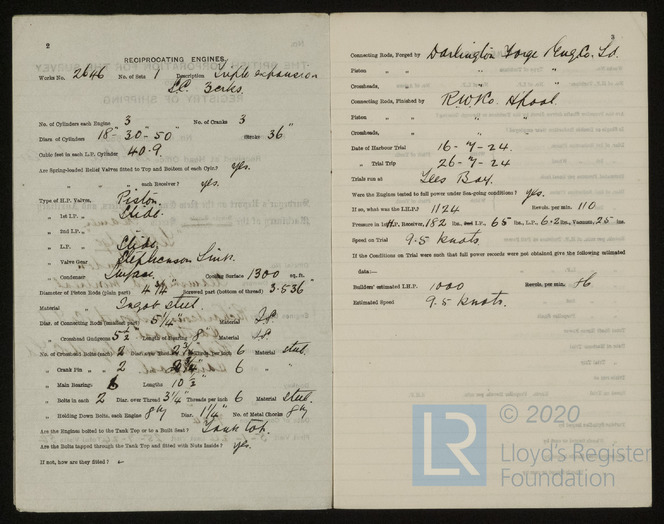 2
RECIPROCATING ENGINES
Works No. 2646 No. of Sets 1 Description Triple expansion
S.C. 3 crks.
No. of Cylinders each Engine 3 No. of Cranks 3
Diars. of Cylinders 18" - 30 - 50" Stroke 36"
Cubic feet in each L.P. Cylinder 40.9.
Are Spring-loaded Relief Valves fitted to Top and Bottom of each Cylr.? yes.
" " each Receiver? yes.
Type of H.P. Valves, Piston.
" 1st I.P. " Slide.
" 2nd I.P. "
" L.P. " Slide.
" Valve Gear Stephenson Link.
" Condenser Surface Cooling Surface 1300 sq. ft.
Diameter of Piston Rods (plain part) 4 3/4" Screwed part (bottom of thread) 3.536"
Material Ingot steel.
Diar. of Connecting Rods (smallest part) 5 1/4" Material I.S.
" Crosshead Gudgeons 5 1/2" Length of Bearing 8" Material I.S.
No. of Crosshead Bolts (each) 2 Diar. over Thrd. Thrds. per inch 6 Material steel.
" Crank Pin " " 2 " 6 "
" Main Bearings 6 Lengths 10 1/2"
" Bolts in each 2 Diar. over Thread 3 1/4" Threads per inch 6 Material steel.
" Holding Down Bolts, each Engine Diar. 1 1/4" No. of Metal Chocks
Are the Engines bolted to the Tank Top or to a Built Seat? Tank top.
Are the Bolts tapped through the Tank Top and fitted with Nuts Inside? yes.
If not, how are they fitted? -
3
Connecting Rods, Forged by Darlington Forge Co. Ld.
Piston " " "
Crossheads, " "
Connecting Rods, Finished by R.W. & Co. H'pool.
Piston " " "
Crossheads, " "
Date of Harbour Trial 16-7-24.
" Trial Trip 26-7-24
Trials run at Tees Bay.
Were the Engines tested to full power under Sea-going conditions? yes.
If so, what was the I.H.P.? 1124 Revols. per min. 110
Pressure in 1st I.P. Receiver, 182 lbs., I.P., 65 lbs., L.P., 6.2 lbs., Vacuum, 25 ins.
Speed on Trial 9.5 knots.
If the Conditions on Trial were such that full power records were not obtained give the following estimated
data:—
Builders' estimated I.H.P. 1000 Revols. per min.
Estimated Speed 9.5 knots.
© 2020
LR
Lloyd's Register
Foundation